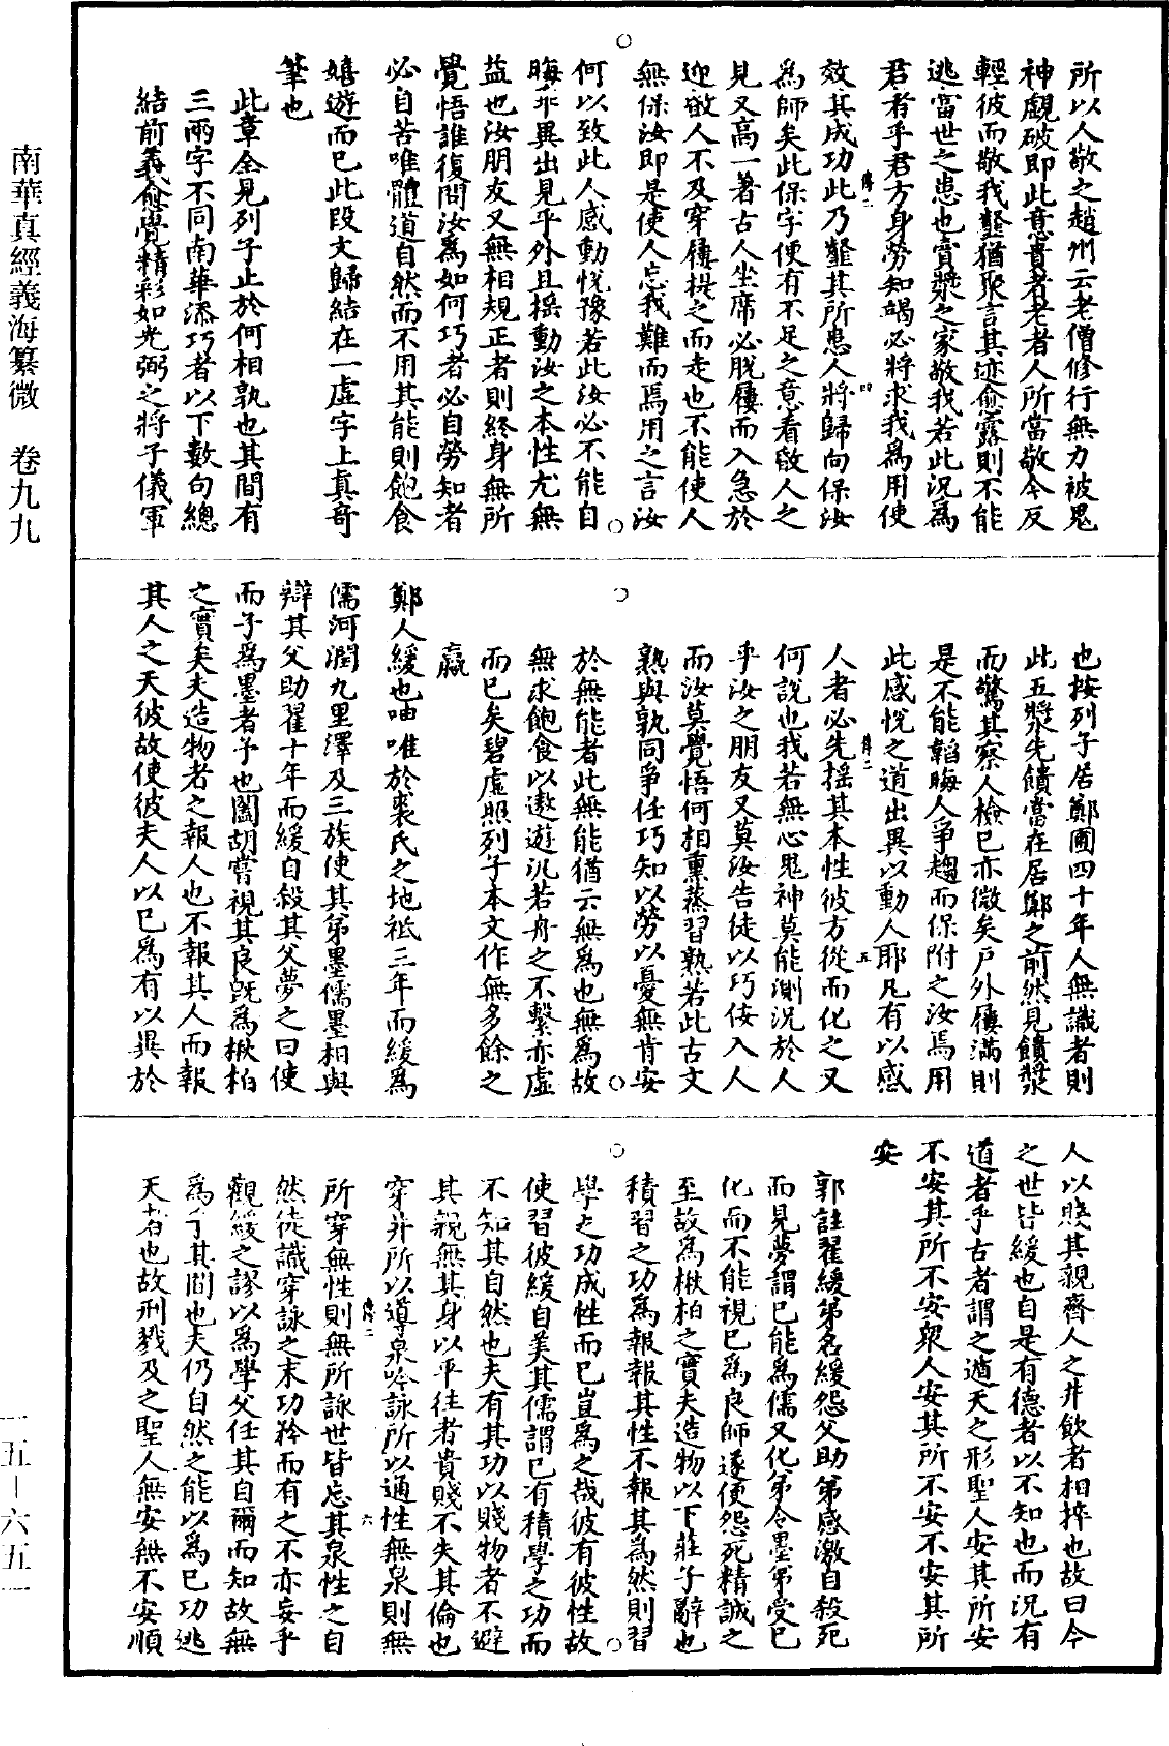 南華真經義海纂微　卷九九
所以人敬之趙州云老僧修行無力被鬼
神覷破即此意貴者老者人所當敬今反
輕彼而敬我𩐎猶聚言其迹愈露則不能
逃當世之患也賣漿之家敬我若此況為
君者乎君方身勞知竭必將求我為用使
效其成功此乃𩐎其所患人將歸向保汝
為師矣此保字便有不足之意看啟人之
見又高一著古人坐席必脫屨而入急於
迎敬人不及穿屨提之而走也不能使人
無保汝即是使人忘我難而焉用之言汝
何以致此人感動悅豫若此汝必不能自
晦乖異出見乎外且搖動汝之本性尤無
益也汝朋友又無相規正者則終身無所
覺悟誰復問汝為如何巧者必自勞知者
必自苦唯體道自然而不用其能則飽食
嬉遊而已此段文歸結在一虛字上真奇
筆也
此章全見列子止於何相孰也其間有
三兩字不同南華添巧者以下數句總
結前義愈覺精彩如光弼之將子儀軍
也按列子居鄭圃四十年人無識者則
此五漿先饋當在居鄭之前然見饋漿
而驚其察人檢己亦微矣戶外屨滿則
是不能韜晦人爭趨而保附之汝焉用
此感悅之道出異以動人耶凡有以感
人者必先搖其本性彼方從而化之又
何說也我若無心鬼神莫能測況於人
乎汝之朋友又莫汝告徒以巧佞入人
而汝莫覺悟何相熏蒸習熟若此古文
熟與孰同爭任巧知以勞以憂無肯安
於無能者此無能猶云無為也無為故
無求飽食以遨遊汎若舟之不繫亦虛
而已矣碧虛照列子本文作無多餘之
贏
鄭人緩也呻唯於裘氏之地袛三年而緩為
儒河潤九里澤及三族使其弟墨儒墨相與
辯其父助翟十年而緩自殺其父夢之曰使
而子為墨者予也闔胡嘗視其良既為楸柏
之實矣夫造物者之報人也不報其人而報
其人之天彼故使彼夫人以己為有以異於
人以賤其親齊人之井飲者相捽也故曰今
之世皆緩也自是有德者以不知也而況有
道者乎古者謂之遁天之形聖人安其所安
不安其所不安衆人安其所不安不安其所
安
郭註翟緩弟名緩怨父助弟感激自殺死
而見夢謂己能為儒又化弟令墨弟受己
化而不能視己為良師遂使怨死精誠之
至故為楸柏之實夫造物以下莊子辭也
積習之功為報報其性不報其為然則習
學之功成性而已豈為之哉彼有彼性故
使習彼緩自美其儒謂己有積學之功而
不知其自然也夫有其功以賤物者不避
其親無其身以平往者貴賤不失其倫也
穿井所以導泉吟詠所以通性無泉則無
所穿無性則無所詠世皆忘其泉性之自
然徒識穿詠之末功矜而有之不亦妄乎
觀緩之謬以為學父任其自爾而知故無
為乎其間也夫仍自然之能以為己功逃
天者也故刑戮及之聖人無安無不安順
一五—六五一